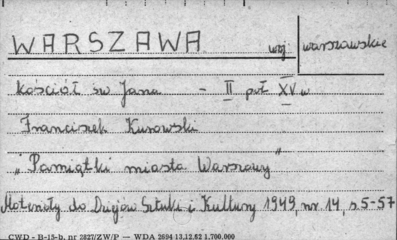 WARSZAWA woj. warszawskie
Kościół św Jana - II poł XV w
Franciszek Kurowski
"Pamiątki miasta Warszawy"
Materiały do Dziejów Sztuki i Kultury 1949, nr 14, s. 5-57
CWD - B-15-b, nr 2827/ZW/P — WDA 2694 13.12.52 1.700.000